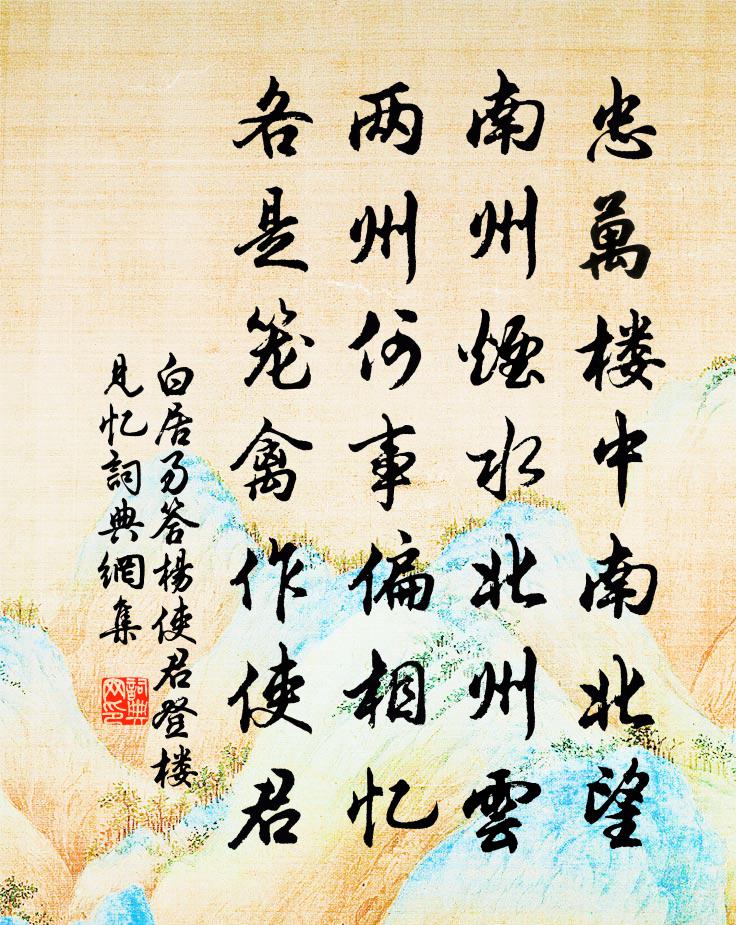 忠萬楼中南北望
南州煙水北州雲
两州何事偏相忆
各是笼禽作使君
白居易答楊使君登楼
見忆詞典網集
詞典网印